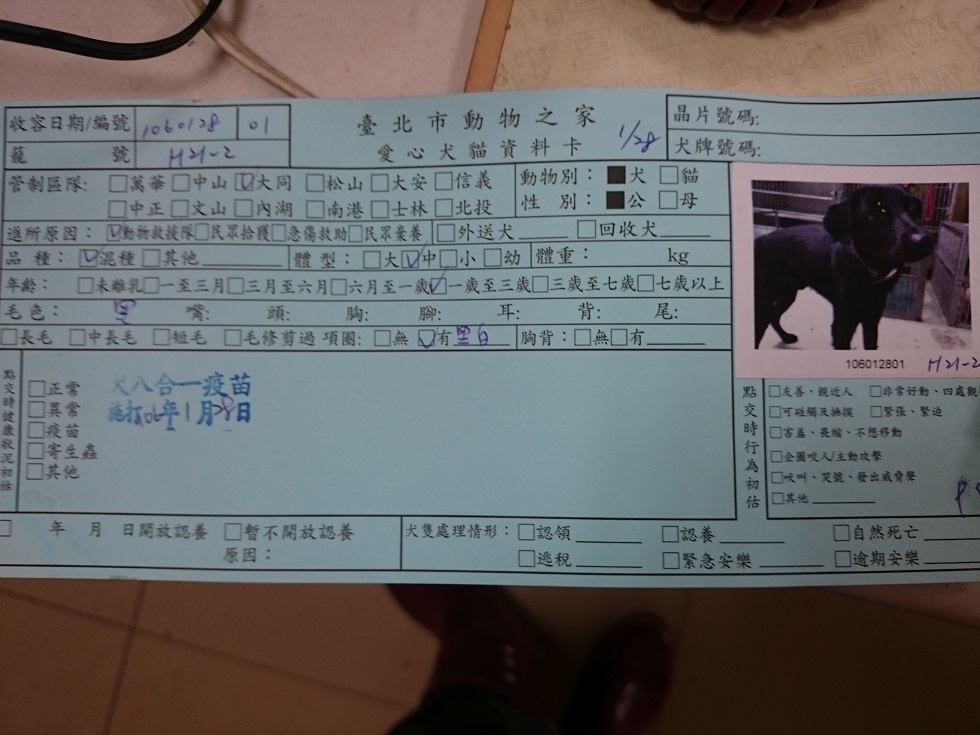 臺北市動物之家
愛心犬貓資料卡 1/28
收容日期/編號 1060128 01
籠號 H21-2
晶片號碼:
犬牌號碼:
管制區隊: □萬華 □中山 ☑大同 □松山 □大安 □信義
□中正 □文山 □內湖 □南港 □士林 □北投
動物別: ■犬 □貓
性別: ■公 □母
進所原因: ☑動物救援隊 □民眾拾獲 □急傷救助 □民眾棄養 □外送犬 □回收犬
品種: ☑混種 □其他 體型: □大 ☑中 □小 □幼 體重: kg
年齡: □未離乳 □一至三月 □三月至六月 □六月至一歲 ☑一歲至三歲 □三歲至七歲 □七歲以上
毛色: 黑 嘴: 頭: 胸: 腳: 耳: 背: 尾:
□長毛 □中長毛 □短毛 □毛修剪過 項圈: □無 ☑有 黑白 胸背: □無 □有
106012801 H21-2
點交時健康狀況初估
□正常
□異常
□疫苗
□寄生蟲
□其他
犬八合一疫苗
施打06年1月28日
點交時行為初估
□友善、親近人 □非常好動、四處觀
□可碰觸及撫摸 □緊張、緊迫
□害羞、畏縮、不想移動
□企圖咬人/主動攻擊
□吠叫、哭號、發出威脅聲
□其他
□ 年 月 日開放認養 □暫不開放認養
原因:
犬隻處理情形: □認領 □認養 □自然死亡
□逃脫 □緊急安樂 □逾期安樂